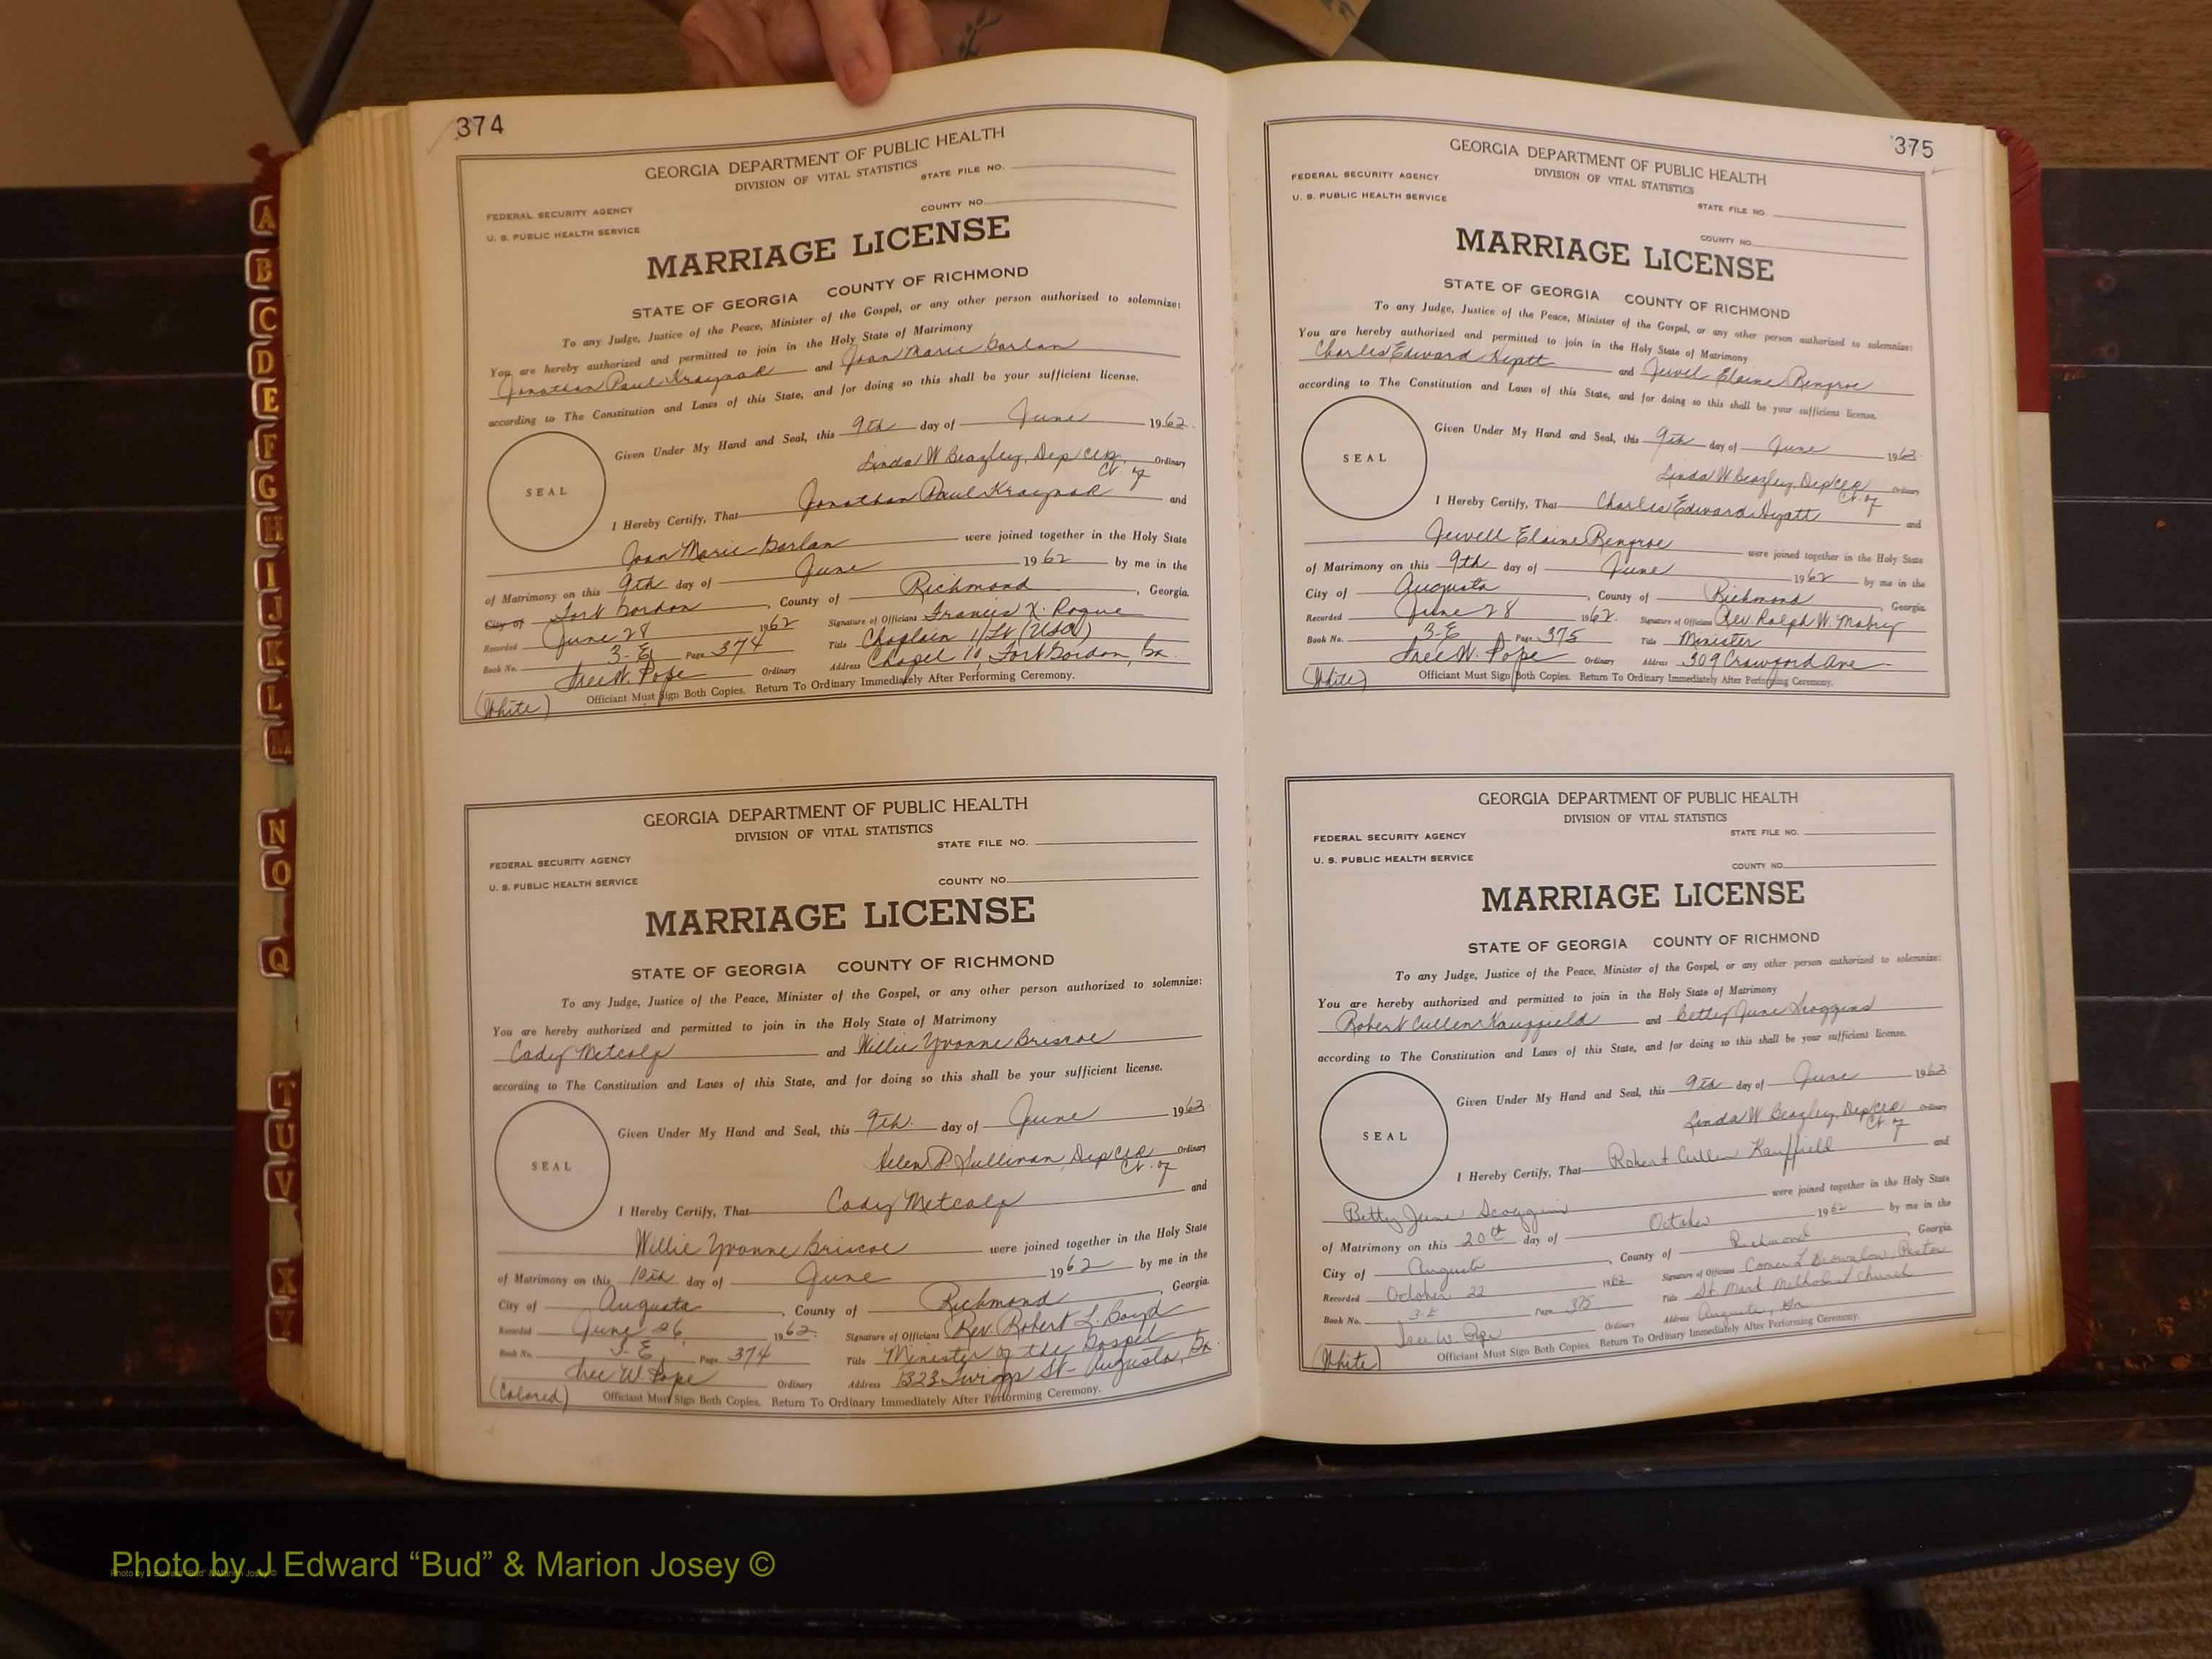 374
GEORGIA DEPARTMENT OF PUBLIC HEALTH
DIVISION OF VITAL STATISTICS
STATE FILE NO.
FEDERAL SECURITY AGENCY
COUNTY NO.
U. S. PUBLIC HEALTH SERVICE
MARRIAGE LICENSE
STATE OF GEORGIA COUNTY OF RICHMOND
To any Judge, Justice of the Peace, Minister of the Gospel, or any other person authorized to solemnize:
You are hereby authorized and permitted to join in the Holy State of Matrimony
Jonathan Paul Kraynak and Joan Marie Harlan
according to The Constitution and Laws of this State, and for doing so this shall be your sufficient license.
Given Under My Hand and Seal, this 9th day of June 1962.
Linda W Beazley, Dep Clk Ordinary
Ct. of
SEAL
I Hereby Certify, That Jonathan Paul Kraynak and
Joan Marie Harlan were joined together in the Holy State
of Matrimony on this 9th day of June 1962 by me in the
City of Fort Gordon, County of Richmond, Georgia.
Recorded June 28 1962 Signature of Officiant Francis X. Rogue
Book No. 3-E Page 374 Title Chaplain 1/Lt (USA)
Tree W. Pope Ordinary Address Chapel 10, Fort Gordon, Ga.
(White) Officiant Must Sign Both Copies. Return To Ordinary Immediately After Performing Ceremony.
GEORGIA DEPARTMENT OF PUBLIC HEALTH
DIVISION OF VITAL STATISTICS
STATE FILE NO.
FEDERAL SECURITY AGENCY
U. S. PUBLIC HEALTH SERVICE
COUNTY NO.
MARRIAGE LICENSE
STATE OF GEORGIA COUNTY OF RICHMOND
To any Judge, Justice of the Peace, Minister of the Gospel, or any other person authorized to solemnize:
You are hereby authorized and permitted to join in the Holy State of Matrimony
Cady Metcalf and Willie Yvonne Briscoe
according to The Constitution and Laws of this State, and for doing so this shall be your sufficient license.
Given Under My Hand and Seal, this 9th. day of June 1962
Helen P. Sullivan, Dep Clk Ordinary
Ct. of
SEAL
I Hereby Certify, That Cady Metcalf and
Willie Yvonne Briscoe were joined together in the Holy State
of Matrimony on this 10th day of June 1962 by me in the
City of Augusta, County of Richmond, Georgia.
Recorded June 26, 1962. Signature of Officiant Rev. Robert L. Boyd
Book No. 3-E Page 374 Title Minister of the Gospel
Tree W. Pope Ordinary Address 1323 Twiggs St - Augusta, Ga.
(Colored) Officiant Must Sign Both Copies. Return To Ordinary Immediately After Performing Ceremony.
375
GEORGIA DEPARTMENT OF PUBLIC HEALTH
DIVISION OF VITAL STATISTICS
FEDERAL SECURITY AGENCY
U. S. PUBLIC HEALTH SERVICE
STATE FILE NO.
COUNTY NO.
MARRIAGE LICENSE
STATE OF GEORGIA COUNTY OF RICHMOND
To any Judge, Justice of the Peace, Minister of the Gospel, or any other person authorized to solemnize:
You are hereby authorized and permitted to join in the Holy State of Matrimony
Charles Edward Hyatt and Jewel Elaine Rengroe
according to The Constitution and Laws of this State, and for doing so this shall be your sufficient license.
Given Under My Hand and Seal, this 9th day of June 1962
Linda W Beazley, Dep Clk Ordinary
Ct. of
SEAL
I Hereby Certify, That Charles Edward Hyatt and
Jewell Elaine Rengroe were joined together in the Holy State
of Matrimony on this 9th day of June 1962 by me in the
City of Augusta, County of Richmond, Georgia
Recorded June 28 1962. Signature of Officiant Rev. Ralph W. Mabry
Book No. 3-E Page 375 Title Minister
Tree W. Pope Ordinary Address 309 Crawford Ave
(White) Officiant Must Sign Both Copies. Return To Ordinary Immediately After Performing Ceremony.
GEORGIA DEPARTMENT OF PUBLIC HEALTH
DIVISION OF VITAL STATISTICS
FEDERAL SECURITY AGENCY
STATE FILE NO.
U. S. PUBLIC HEALTH SERVICE
COUNTY NO.
MARRIAGE LICENSE
STATE OF GEORGIA COUNTY OF RICHMOND
To any Judge, Justice of the Peace, Minister of the Gospel, or any other person authorized to solemnize:
You are hereby authorized and permitted to join in the Holy State of Matrimony
Robert Cullen Kauffield and Betty June Scoggins
according to The Constitution and Laws of this State, and for doing so this shall be your sufficient license.
Given Under My Hand and Seal, this 9th day of June 1962
Linda W Beazley, Dep Clk Ordinary
Ct. of
SEAL
I Hereby Certify, That Robert Cullen Kauffield and
Betty June Scoggins were joined together in the Holy State
of Matrimony on this 20th day of October 1962 by me in the
City of Augusta, County of Richmond, Georgia
Recorded October 22 1962 Signature of Officiant Comer L Brownlow, Pastor
Book No. 3-E Page 375 Title St. Mark Methodist Church
Tree W. Pope Ordinary Address Augusta, Ga
(White) Officiant Must Sign Both Copies. Return To Ordinary Immediately After Performing Ceremony.
A
B
C
D
E
F
G
H
I
J
K
L
M
N
O
Q
T
U
V
X
Y
Photo by J Edward “Bud” & Marion Josey ©
Photo by J Edward "Bud" & Marion Josey ©